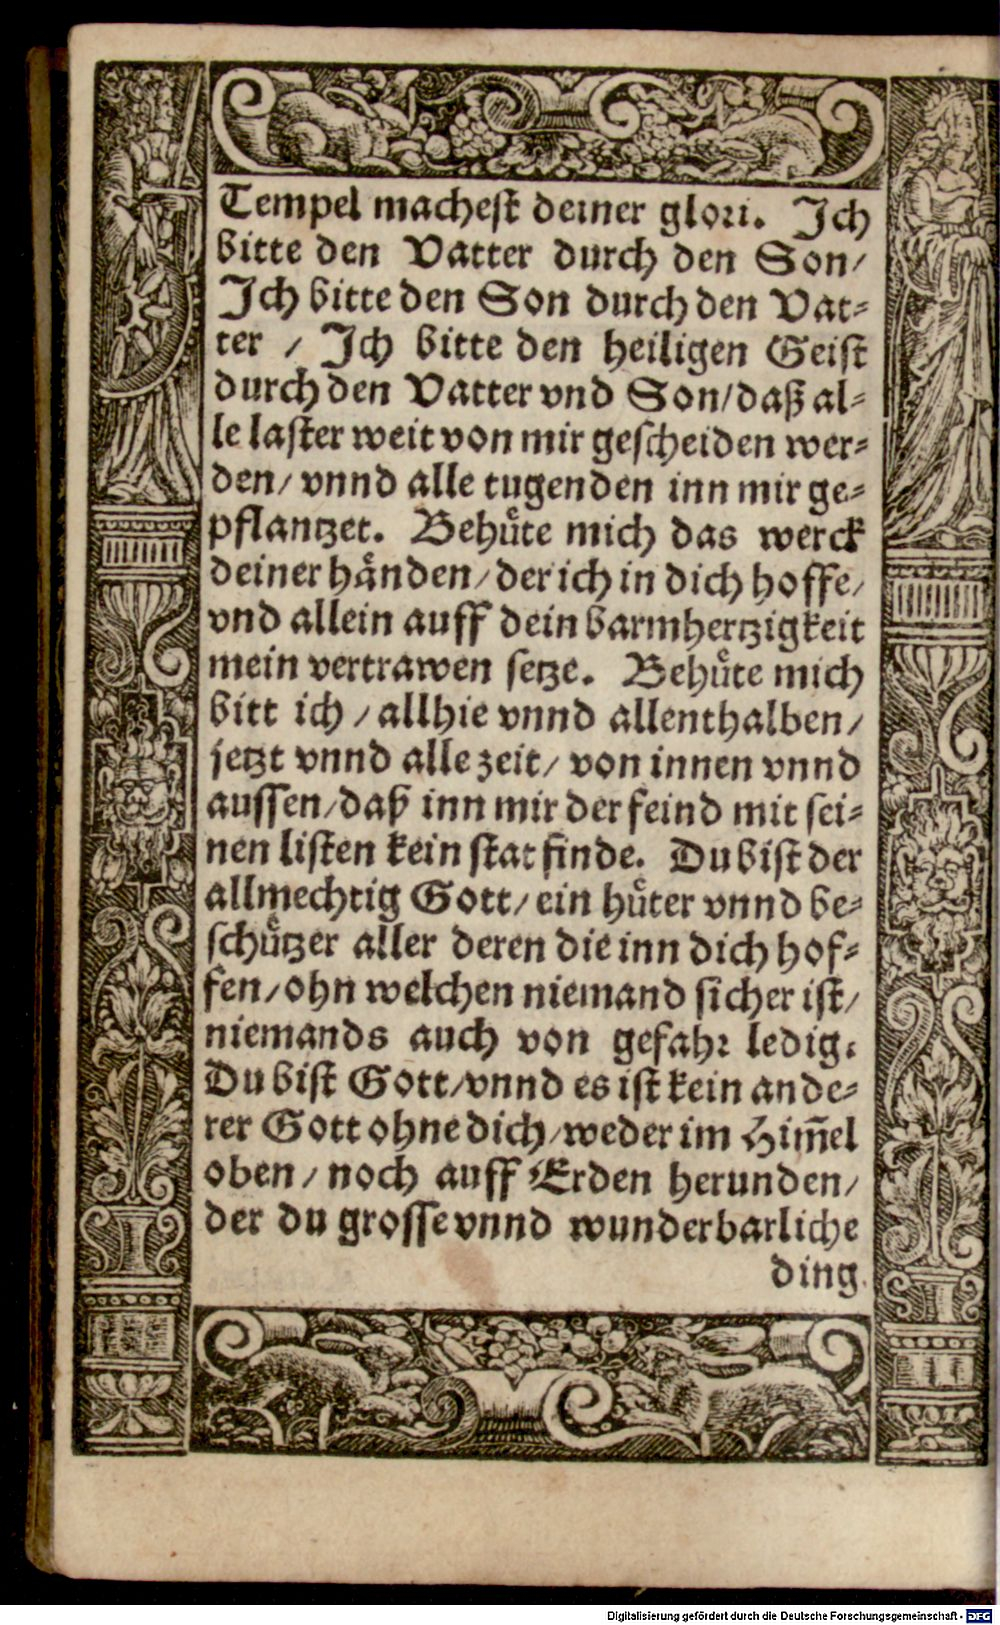 Tempel machest deiner glori. Ich
bitte den Vatter durch den Son/
Ich bitte den Son durch den Vat-
ter / Ich bitte den heiligen Geist
durch den Vatter vnd Son/daß al-
le laster weit von mir gescheiden wer-
den/ vnnd alle tugenden inn mir ge-
pflantzet. Behuͤte mich das werck
deiner haͤnden/der ich in dich hoffe/
vnd allein auff dein barmhertzigkeit
mein vertrawen setze. Behuͤte mich
bitt ich / allhie vnnd allenthalben/
jetzt vnnd alle zeit/ von innen vnnd
aussen/daß inn mir der feind mit sei-
nen listen kein stat finde. Du bist der
allmechtig Gott/ ein huͤter vnnd be-
schuͤtzer aller deren die inn dich hof-
fen/ohn welchen niemand sicher ist/
niemands auch von gefahr ledig.
Du bist Gott/vnnd es ist kein ande-
rer Gott ohne dich/weder im Him̃el
oben/ noch auff Erden herunden/
der du grosse vnnd wunderbarliche
ding
Digitalisierung gefördert durch die Deutsche Forschungsgemeinschaft - DFG